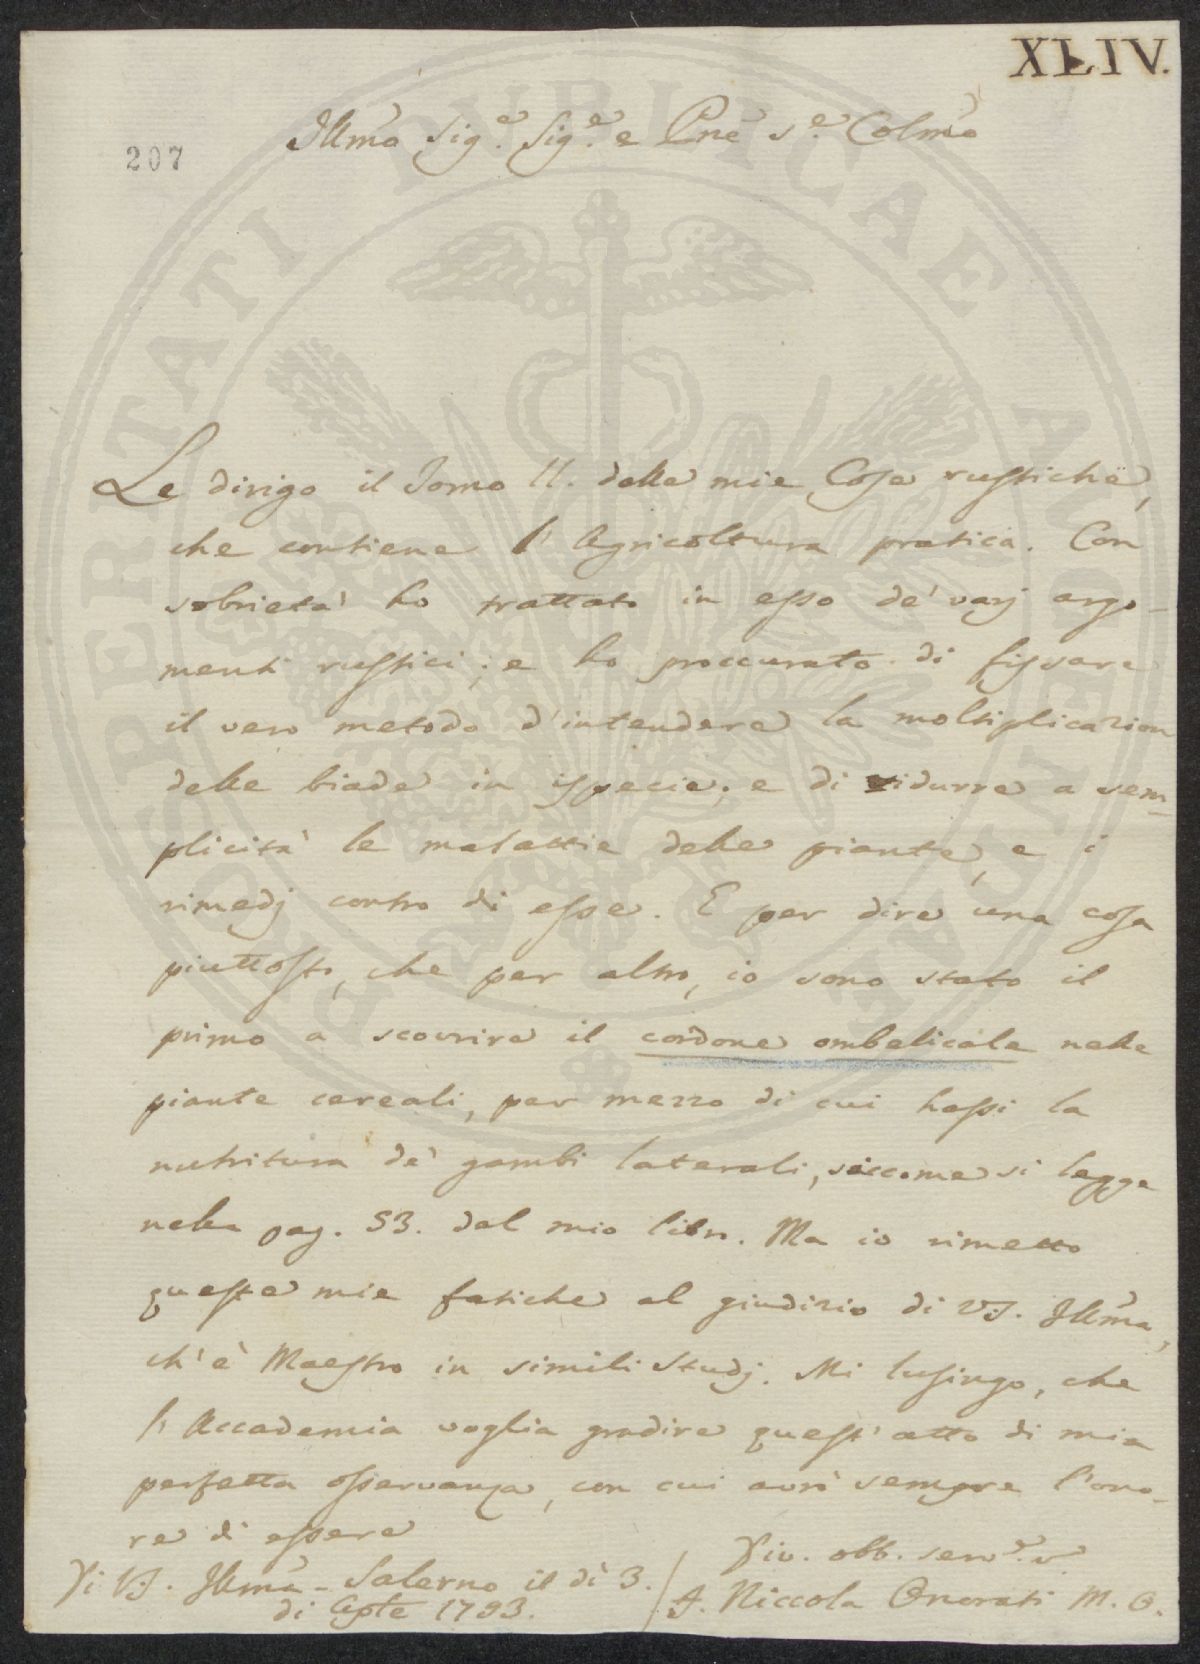 XLIV.
207
Illmo Sig.e Sig.e e Pne S.e Colmo
Le dirigo il Tomo II. delle mie Cose rustiche,
che contiene l'Agricoltura pratica. Con
sobrietà ho trattato in esso de' varj argo-
menti rustici; e ho proccurato di fissare
il vero metodo d'intendere la moltiplicazion
delle biade in ispecie; e di ridurre a sem-
plicità le malattie delle piante, e i
rimedj contro di esse. E per dire una cosa
piuttosto, che per altro, io sono stato il
primo a scovrire il cordone ombelicale nelle
piante cereali, per mezzo di cui hassi la
nutritura de' gambi laterali, siccome si legge
nella pag. 53. del mio libro. Ma io rimetto
queste mie fatiche al giudizio di V.S. Illma,
ch'è Maestro in simili studj. Mi lusingo, che
l'Accademia voglia gradire quest'atto di mia
perfetta osservanza, con cui avrò sempre l'ono-
re di essere
Di V.S. Illma - Salerno il dì 3.
di Agste 1793.
Div. obb. serv.e v
F. Niccola Onorati M. O.
PROSPERITATI PUBLICAE AUGENDAE